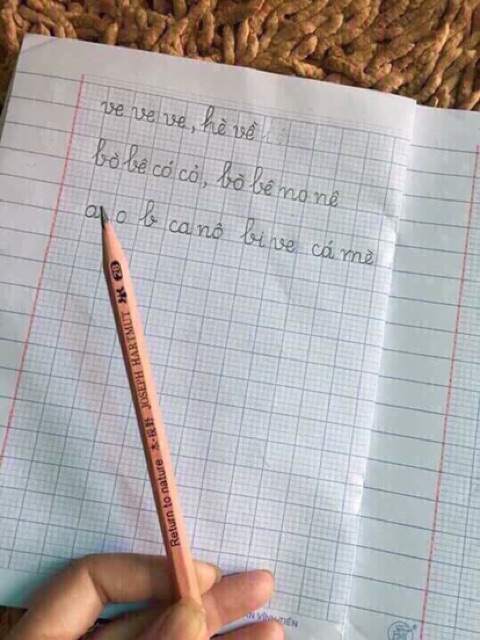 ve ve ve, hè về
bò bê có cỏ, bò bê no nê
a o b ca nô bi ve cá mè
2B
JOSEPH HARTMUT
Return to nature
VĨNH TIẾN